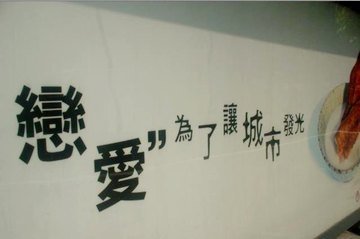 戀愛”為了讓城市發光